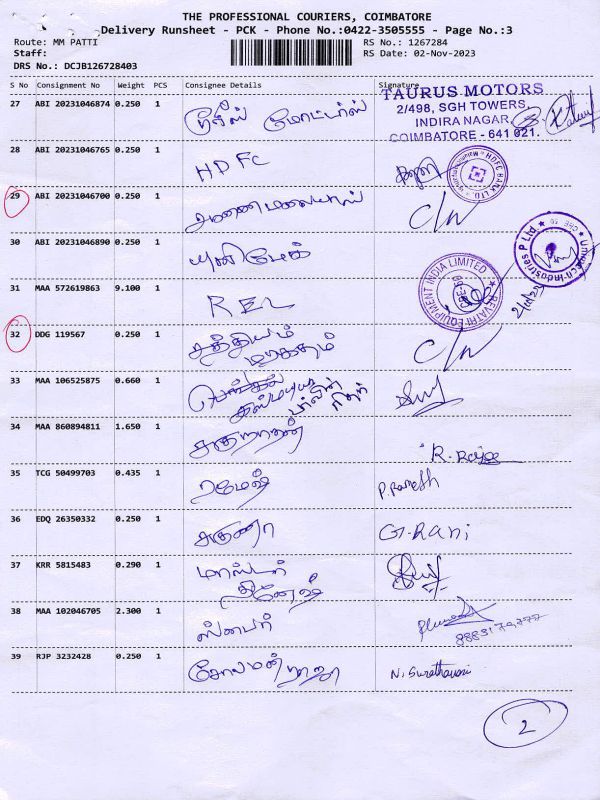 THE PROFESSIONAL COURIERS, COIMBATORE
Delivery Runsheet - PCK - Phone No.:0422-3505555 - Page No.:3
Route: MM PATTI RS No.: 1267284
Staff: RS Date: 02-Nov-2023
DRS No.: DCJB126728403
S No Consignment No Weight PCS Consignee Details Signature
27 ABI 20231046874 0.250 1 மோட்டார்ஸ்
TAURUS MOTORS
2/498, SGH TOWERS,
INDIRA NAGAR,
COIMBATORE - 641 021.
28 ABI 20231046765 0.250 1 HDFC
HDFC BANK LTD.
29 ABI 20231046700 0.250 1 C/N
30 ABI 20231046890 0.250 1 யுனிமேக்
Unimech Industries P Ltd
CBE
31 MAA 572619863 9.100 1 REL
REVATHI EQUIPMENT INDIA LIMITED
32 DDG 119567 0.250 1 சத்தியம் C/N
மரகதம்
33 MAA 106525875 0.660 1
34 MAA 860894811 1.650 1 R. Raja
35 TCG 50499703 0.435 1 ரமேஷ் P. Ramesh
36 EDQ 26350332 0.250 1 சகுணா G. Rani
37 KRR 5815483 0.290 1 மாஸ்டர்
தினேஷ்
38 MAA 102046705 2.300 1
39 RJP 3232428 0.250 1 சோலமன் ராஜா
2